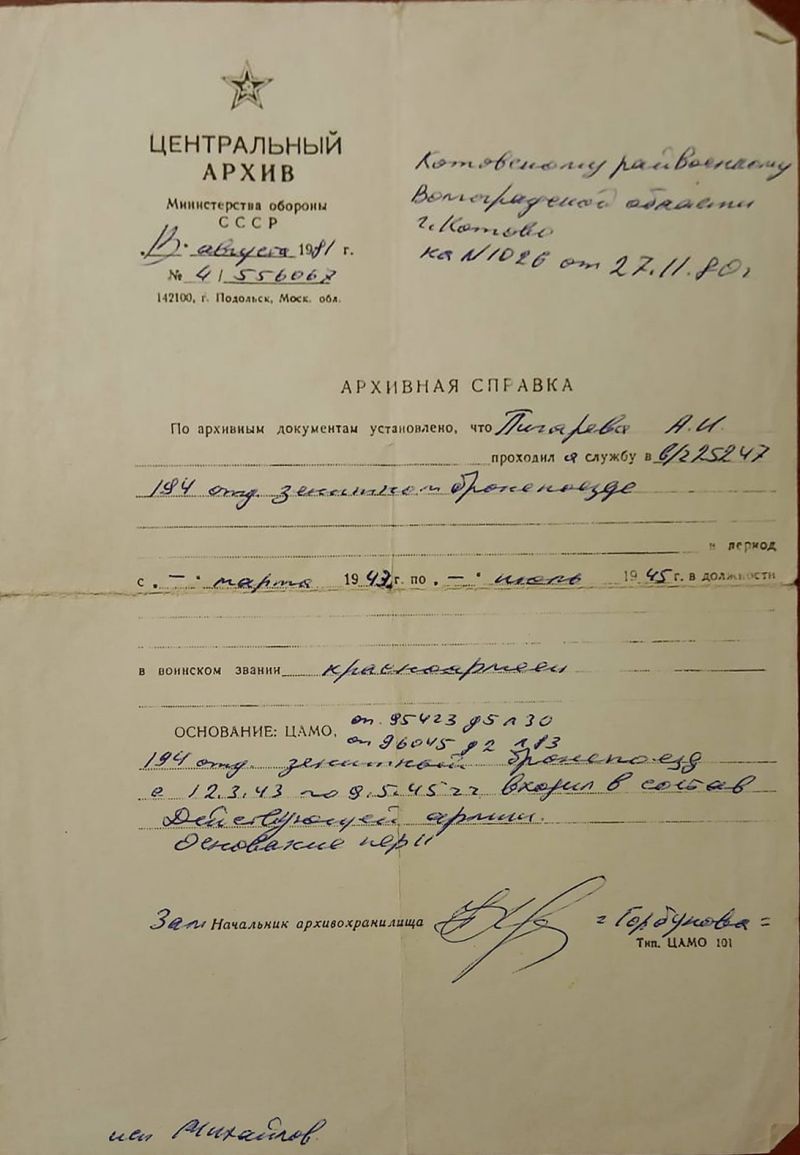 ЦЕНТРАЛЬНЫЙ
АРХИВ
Министерства обороны
СССР
августа 1981 г.
№ 4/556067
142100, г. Подольск, Моск. обл.
Котовскому райвоенкому
Волгоградской области
г. Котово
на №1026 от 27.11.80г
АРХИВНАЯ СПРАВКА
По архивным документам установлено, что Пигарева А.И.
проходил а службу в 25247
194 отд. зенитном бронепоезде
в период
с „ – " марта 1943 г. по „ – " июль 1945 г. в должности
в воинском звании красноармеец
ОСНОВАНИЕ: ЦАМО, оп. 95423 д5 л 30
оп 96045 д 2 л 83
194 отд. зенитный бронепоезд
с 12.3.43 по 9.5.45 гг входил в состав
Действующей армии.
Основание
Зам Начальник архивохранилища = Горбунова =
Тип. ЦАМО 101
исп Михайлов